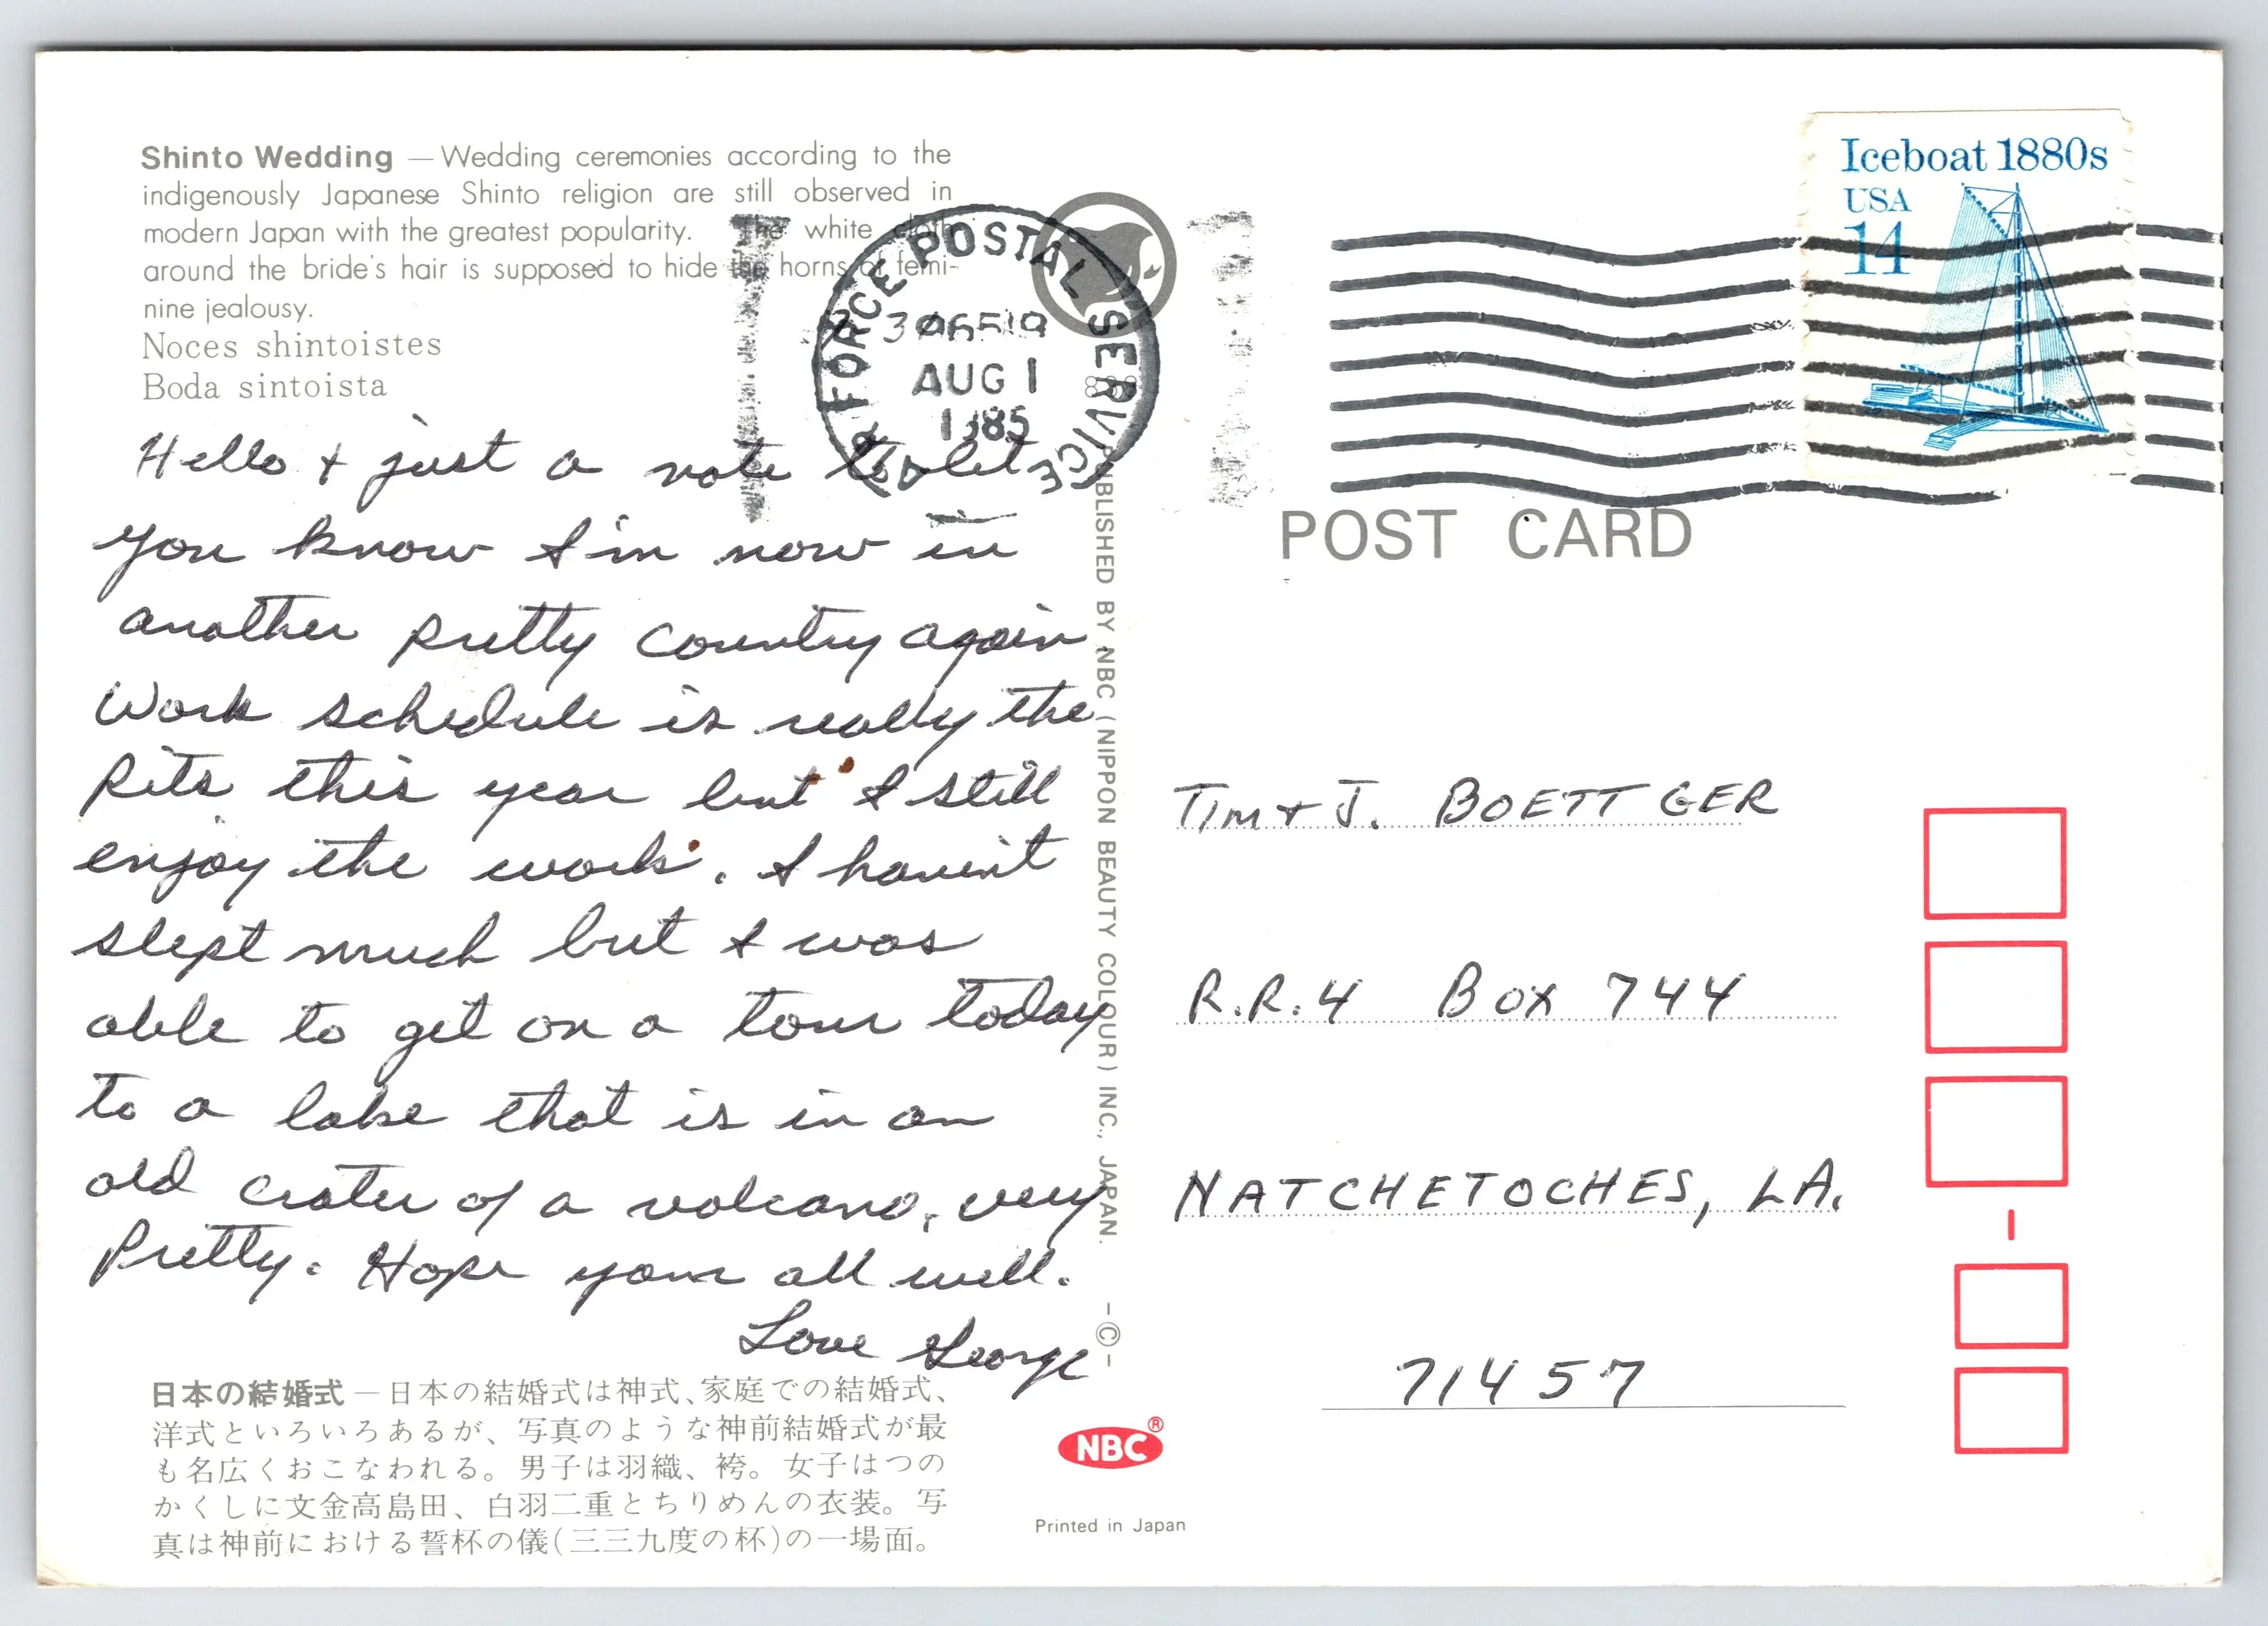 Shinto Wedding — Wedding ceremonies according to the
indigenously Japanese Shinto religion are still observed in
modern Japan with the greatest popularity. The white cloth
around the bride's hair is supposed to hide the horns of femi-
nine jealousy.
Noces shintoistes
Boda sintoista
Hello + just a note to let
you know I'm now in
another pretty country again
Work schedule is really the
pits this year but I still
enjoy the work. I haven't
slept much but I was
able to get on a tour today
to a lake that is in an
old crater of a volcano, very
Pretty. Hope your all well.
Love George
日本の結婚式 — 日本の結婚式は神式、家庭での結婚式、
洋式といろいろあるが、写真のような神前結婚式が最
も名広くおこなわれる。男子は羽織、袴。女子はつの
かくしに文金高島田、白羽二重とちりめんの衣装。写
真は神前における誓杯の儀(三三九度の杯)の一場面。
AIR FORCE POSTAL SERVICE
AUG 1
1985
PUBLISHED BY NBC (NIPPON BEAUTY COLOUR) INC., JAPAN. -©-
NBC®
Printed in Japan
Iceboat 1880s
USA
14
POST CARD
TIM + J. BOETTGER
R.R.4 BOX 744
NATCHETOCHES, LA.
71457